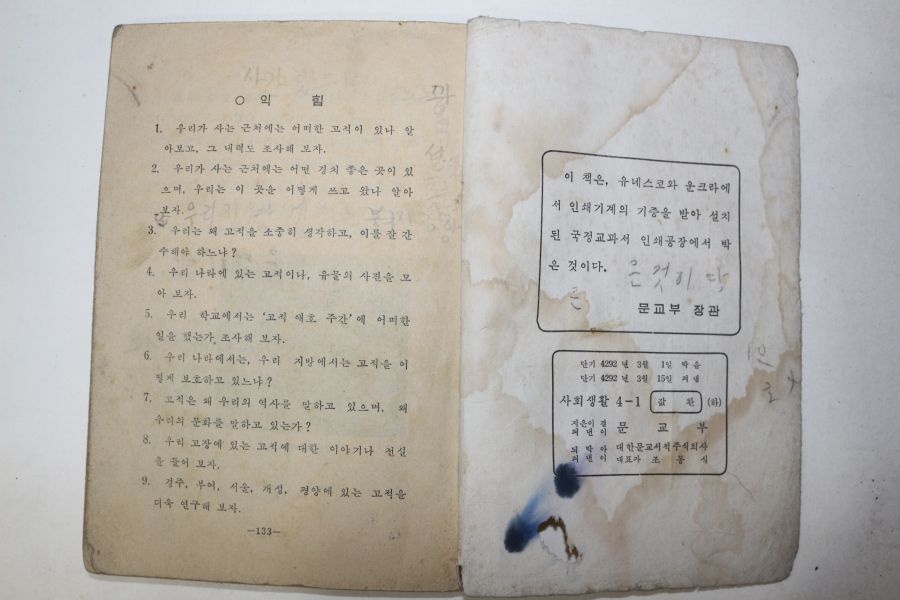 ○ 익 힘
1. 우리가 사는 근처에는 어떠한 고적이 있나 알
아보고, 그 내력도 조사해 보자.
2. 우리가 사는 근처에는 어떤 경치 좋은 곳이 있
으며, 우리는 이 곳을 어떻게 쓰고 왔나 알아
보자.
3. 우리는 왜 고적을 소중히 생각하고, 이를 잘 간
수해야 하느냐?
4. 우리 나라에 있는 고적이나, 유물의 사진을 모
아 보자.
5. 우리 학교에서는 ‘고적 애호 주간’에 어떠한
일을 했는가 조사해 보자.
6. 우리 나라에서는, 우리 지방에서는 고적을 어
떻게 보호하고 있느냐?
7. 고적은 왜 우리의 역사를 말하고 있으며, 왜
우리의 문화를 말하고 있는가?
8. 우리 고장에 있는 고적에 대한 이야기나 전설
을 들어 보자.
9. 경주, 부여, 서울, 개성, 평양에 있는 고적을
더욱 연구해 보자.
—133—
이 책은, 유네스코와 운크라에
서 인쇄기계의 기증을 받아 설치
된 국정교과서 인쇄공장에서 박
은 것이다. 은 것이다
문교부 장관
단기 4292 년 3월 1일 박음
단기 4292 년 3월 15일 펴냄
사회생활 4-1 (하)
지은이 겸
펴낸이 문교부
박아
펴낸이 대한문교서적주식회사
대표자 조동식